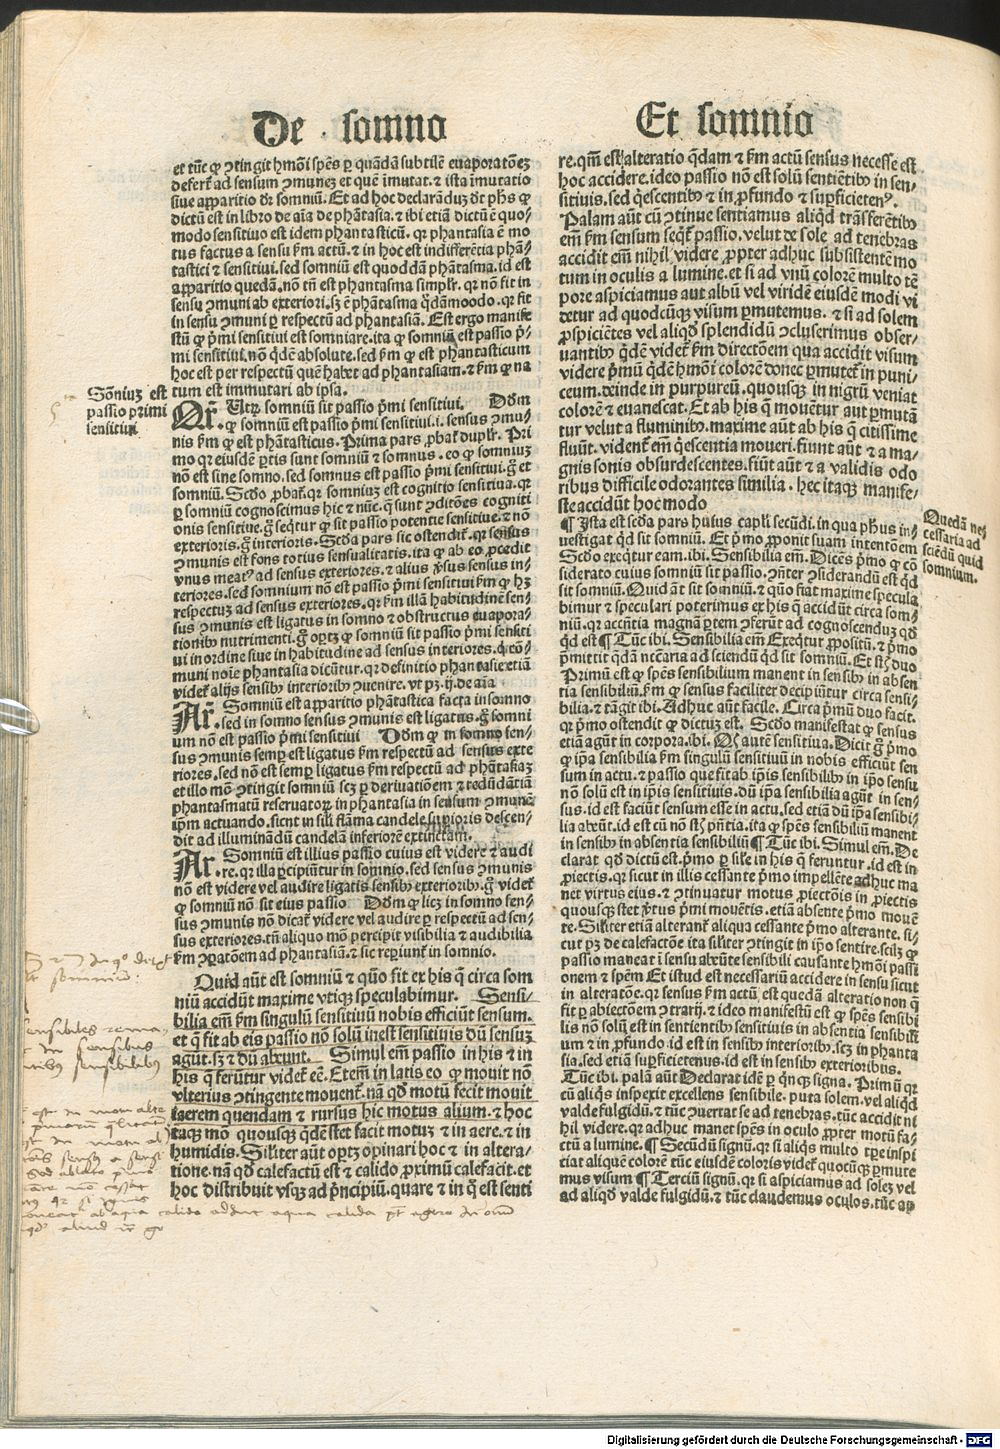 De somno
Et somnio
et tūc ꝙ ↄtingit hmōi spēs ꝑ quādā subtilē euaporatōeꝫ
defert̄ ad sensum ↄmuneꝫ et quē īmutat. ⁊ ista īmutatio
siue apparitio dr̄ somniū. Et ad hoc declarāduꝫ dr̄ phs ꝙ
dictū est in libro de aīa de phātasia. ⁊ ibi etiā dictū ē quo/
modo sensitiuo est idem phantasticū. qꝛ phantasia ē mo
tus factus a sensu ẜm actū. ⁊ in hoc est indifferētia phā/
tastici ⁊ sensitiui. sed somniū est quoddā phātasma. id est
apparitio quedā. nō tn̄ est phantasma simplr̄. qꝛ nō fit in
sensu ↄmuni ab exteriori. sꝫ ē phātasma q̄dāmoodo. qꝛ fit
in sensu ↄmuni ꝑ respectū ad phantasiā. Est ergo manife
stū ꝙ pͥmi sensitiui est somniare. ita ꝙ somniū est passio pͥ/
mi sensitiui. nō q̄dē absolute. sed ẜm ꝙ est phantasticum
hoc est per respectū quē habet ad phantasiam. ⁊ ẜm ꝙ na
tum est immutari ab ipsa.
Sōniuꝫ est
passio pzimi
sensitiui
Qꝛ̄. Utꝝ somniū sit passio pͥmi sensitiui. Dōm
ꝙ somniū est passio pͥmi sensitiui. i. sensus ↄmu/
nis ẜm ꝙ est phantasticus. Prima pars ꝓbat̄ duplr̄. Pri
mo qꝛ eiusdē ꝑtis sunt somniū ⁊ somnus. eo ꝙ somniuꝫ
nō est sine somno. sed somnus est passio pͥmi sensitiui. g̊ et
somniū. Scḋo ꝓbat̄. qꝛ somniuꝫ est cognitio sensitiua. qꝛ
ꝑ somniū cognoscimus hic ⁊ nūc. q̄ sunt ↄditōes cogniti
onis sensitiue. g̊ seq̄tur ꝙ sit passio potentie sensitiue. ⁊ nō
exterioris. g̊ interioris. Scḋa pars sic ostendit̄. qꝛ sensus
ↄmunis est fons totius sensualitatis. ita ꝙ ab eo ꝓcedit
vnus meatꝰ ad sensus exteriores. ⁊ alius ꝟsus sensus in/
teriores. sed somnium nō est passio pͥmi sensitiui ẜm ꝙ hꝫ
respectuꝫ ad sensus exteriores. qꝛ ẜm illā habitudinē sen/
sus ↄmunis est ligatus in somno ⁊ obstructus euapora/
tionibꝰ nutrimenti. g̊ oportꝫ ꝙ somniū sit passio pͥmi sensiti
ui in ordine siue in habitudine ad sensus interiores. q̄ cō/
muni noīe phantasia dicūtur. qꝛ definitio phantasie etiā
videt̄ alijs sensibꝰ interioribꝰ ↄuenire. vt pꝫ. ij. de aīa
Ar̄. Somniū est apparitio phātastica facta in somno
. sed in somno sensus ↄmunis est ligatus. g̊ somni
um nō est passio pͥmi sensitiui Dōm ꝙ in somno sen/
sus ↄmunis semꝑ est ligatus ẜm respectū ad sensus exte
riores. sed nō est semꝑ ligatus ẜm respectū ad phātasiaꝫ
et illo mō ↄtingit somniū scꝫ ꝑ deriuatiōem ⁊ redūdātiā
phantasmatū reseruatoꝝ in phantasia in sensum ↄmunē
ip̄m actuando. sicut in sīli flāma candele suꝑioris descen/
dit ad illuminādū candelā inferiorē extinctam.
Ar̄. Somniū est illius passio cuius est videre ⁊ audi
. re. qꝛ illa ꝑcipiūtur in somnio. sed sensus ↄmunis
nō est videre vel audire ligatis sensibꝰ exterioribꝰ. g̊ videt̄
ꝙ somniū nō sit eius passio Dōm ꝙ licꝫ in somno sen/
sus ↄmunis nō dicat̄ videre vel audire ꝑ respectū ad sen/
sus exteriores. tn̄ aliquo mō percipit visibilia ⁊ audibilia
ẜm ↄꝑatōem ad phantasiā. ⁊ sic reꝑiunt̄ in somnio.
Quid aūt est somniū ⁊ quō fit ex his q̄ circa som
niū accidūt maxime vtiqꝫ speculabimur. Sensi/
bilia em̄ ẜm singulū sensitiuū nobis efficiūt sensum.
et q̄ fit ab eis passio nō solū inest sensitiuis dū sensuꝫ
agūt. sꝫ ⁊ dū abeunt. Simul em̄ passio in his ⁊ in
his q̄ ferūtur videt̄ eē. Etem̄ in latis eo ꝙ mouit nō
vlterius ↄtingente mouent̄. nā qḋ motū fecit mouit
iaerem quendam ⁊ rursus hic motus alium. ⁊ hoc
itaqꝫ mō quousqꝫ q̄dē stet facit motuꝫ ⁊ in aere. ⁊ in
humidis. Sīliter aūt oportꝫ opinari hoc ⁊ in altera/
tione. nā qḋ calefactū est ⁊ calido ꝓximū calefacit. et
hoc distribuit vsqꝫ ad pͥncipiū. quare ⁊ in q̄ est senti
re. qm̄ est alteratio q̄dam ⁊ ẜm actū sensus necesse est
hoc accidere. ideo passio nō est solū sentiētibꝰ in sen/
sitiuis. sed q̄escentibꝰ ⁊ in ꝓfundo ⁊ suꝑficietenꝰ.
Palam aūt cū ↄtinue sentiamus aliqḋ trāsferētibꝰ
em̄ ẜm sensum seqt̄ passio. velut de sole ad tenebras
accidit em̄ nihil videre ꝓpter adhuc subsistentē mo
tum in oculis a lumine. et si ad vnū colorē multo tē
pore aspiciamus aut albū vel viridē eiusdē modi vi
detur ad quodcūqꝫ visum ꝑmutemus. ⁊ si ad solem
ꝓspiciētes vel aliqḋ splendidū ↄcluserimus obser/
uantibꝰ q̄dē videt̄ ẜm directōem qua accidit visum
videre pͥmū q̄dē hmōi colorē donec ꝑmutet̄ in puni/
ceum. deinde in purpureū. quousqꝫ in nigrū veniat
colorē ⁊ euanescat. Et ab his q̄ mouētur aut ꝑmutā
tur velut a fluminibꝰ. maxime aūt ab his q̄ citissime
fluūt. vident̄ em̄ q̄escentia moueri. fiunt aūt ⁊ a ma/
gnis sonis obsurdescentes. fiūt aūt ⁊ a validis odo
ribus difficile odorantes similia. hec itaqꝫ manife/
ste accidūt hoc modo
¶ Ista est scḋa pars huius capl̄i secūdi. in qua phus in/
vestigat qḋ sit somniū. Et pͥmo ꝓponit suam intentōem
Scḋo exeqt̄ur eam. ibi. Sensibilia em̄. Dicēs pͥmo ꝙ cō
siderato cuius somniū sit passio. ↄn̄ter ↄsiderandū est qḋ
sit somniū. Quid āt sit somniū. ⁊ quō fiat maxime specula
bimur ⁊ speculari poterimus ex his q̄ accidūt circa som/
niū. qꝛ accn̄tia magnā ꝑtem ↄferūt ad cognoscenduꝫ qḋ
qḋ est ¶ Tūc ibi. Sensibilia em̄ Exeqt̄ur ꝓpositū. ⁊ pͥmo
pͥmittit q̄dā nccaria ad sciendū qḋ sit somniū. Et sūt duo
Primū est ꝙ spēs sensibilium manent in sensibꝰ in absen
tia sensibiliū. ẜm ꝙ sensus faciliter decipiūtur circa sensi/
bilia. ⁊ tāgit ibi. Adhuc aūt facile. Circa pͥmū duo facit.
qꝛ pͥmo ostendit ꝙ dictuꝫ est. Scḋo manifestat ꝙ sensus
etiā agūt in corpora. ibi. Qꝫ autē sensitiua. Dicit g̊ pͥmo
ꝙ ip̄a sensibilia ẜm singulū sensitiuū in nobis efficiūt sen
sum in actu. ⁊ passio que fit ab ip̄is sensibilibꝰ in ip̄o sensu
nō solū est in ip̄is sensitiuis. dū ip̄a sensibilia agūt in sen/
sus. id est faciūt sensum esse in actu. sed etiā dū ip̄a sensibi/
lia abeūt. id est cū nō sūt pn̄tia. ita ꝙ spēs sensibiliū manent
in sensibꝰ in absentia sensibiliū ¶ Tūc ibi. Simul em̄. De
clarat qḋ dictū est. pͥmo ꝑ sīle in his q̄ feruntur. id est in
ꝓiectis. qꝛ sicut in illis cessante pͥmo impellēte adhuc ma
net virtus eius. ⁊ ↄtinuatur motus ꝓiectōis in ꝓiectis
quousqꝫ stet ꝟtus pͥmi mouētis. etiā absente pͥmo mouē
te. Sīliter etiā alterant̄ aliqua cessante pͥmo alterante. si/
cut pꝫ de calefactōe ita sīliter ↄtingit in ip̄o sentire. scilꝫ ꝙ
passio maneat ī sensu abeūte sensibili causante hmōi passi
onem ⁊ spēm Et istud est necessariū accidere in sensu sicut
in alteratōe. qꝛ sensus ẜm actū. est quedā alteratio non q̄
fit ꝑ abiectōem ↄtrarij. ⁊ ideo manifestū est ꝙ spēs sensibi
lis nō solū. est in sentientibꝰ sensitiuis in absentia sensibili
um ⁊ in ꝓfundo. id est in sensibꝰ interioribꝰ. scꝫ in phanta
sia. sed etiam suꝑficietenus. id est in sensibꝰ exterioribus.
Tūc ibi. palā aūt Declarat idē ꝑ qͥnqꝫ signa. Primū qꝛ
cū aliqͥs inspexit excellens sensibile. puta solem. vel aliqḋ
valde fulgidū. ⁊ tūc ↄuertat se ad tenebras. tūc accidit ni
hil videre. qꝛ adhuc manet spēs in oculo ꝓpter motū fa/
ctū a lumine. ¶ Secūdū signū. qꝛ si aliqͥs multo tꝑe inspi
ciat aliquē colorē tūc eiusdē coloris videt̄ quotcūqꝫ ꝑmute
mus visum ¶ Terciū signū. qꝛ si aspiciamus ad soleꝫ vel
ad aliqḋ valde fulgidū. ⁊ tūc claudemus oculos. tūc ap
Quedā ne/
cessaria ad
sciēdū quid
somnium.